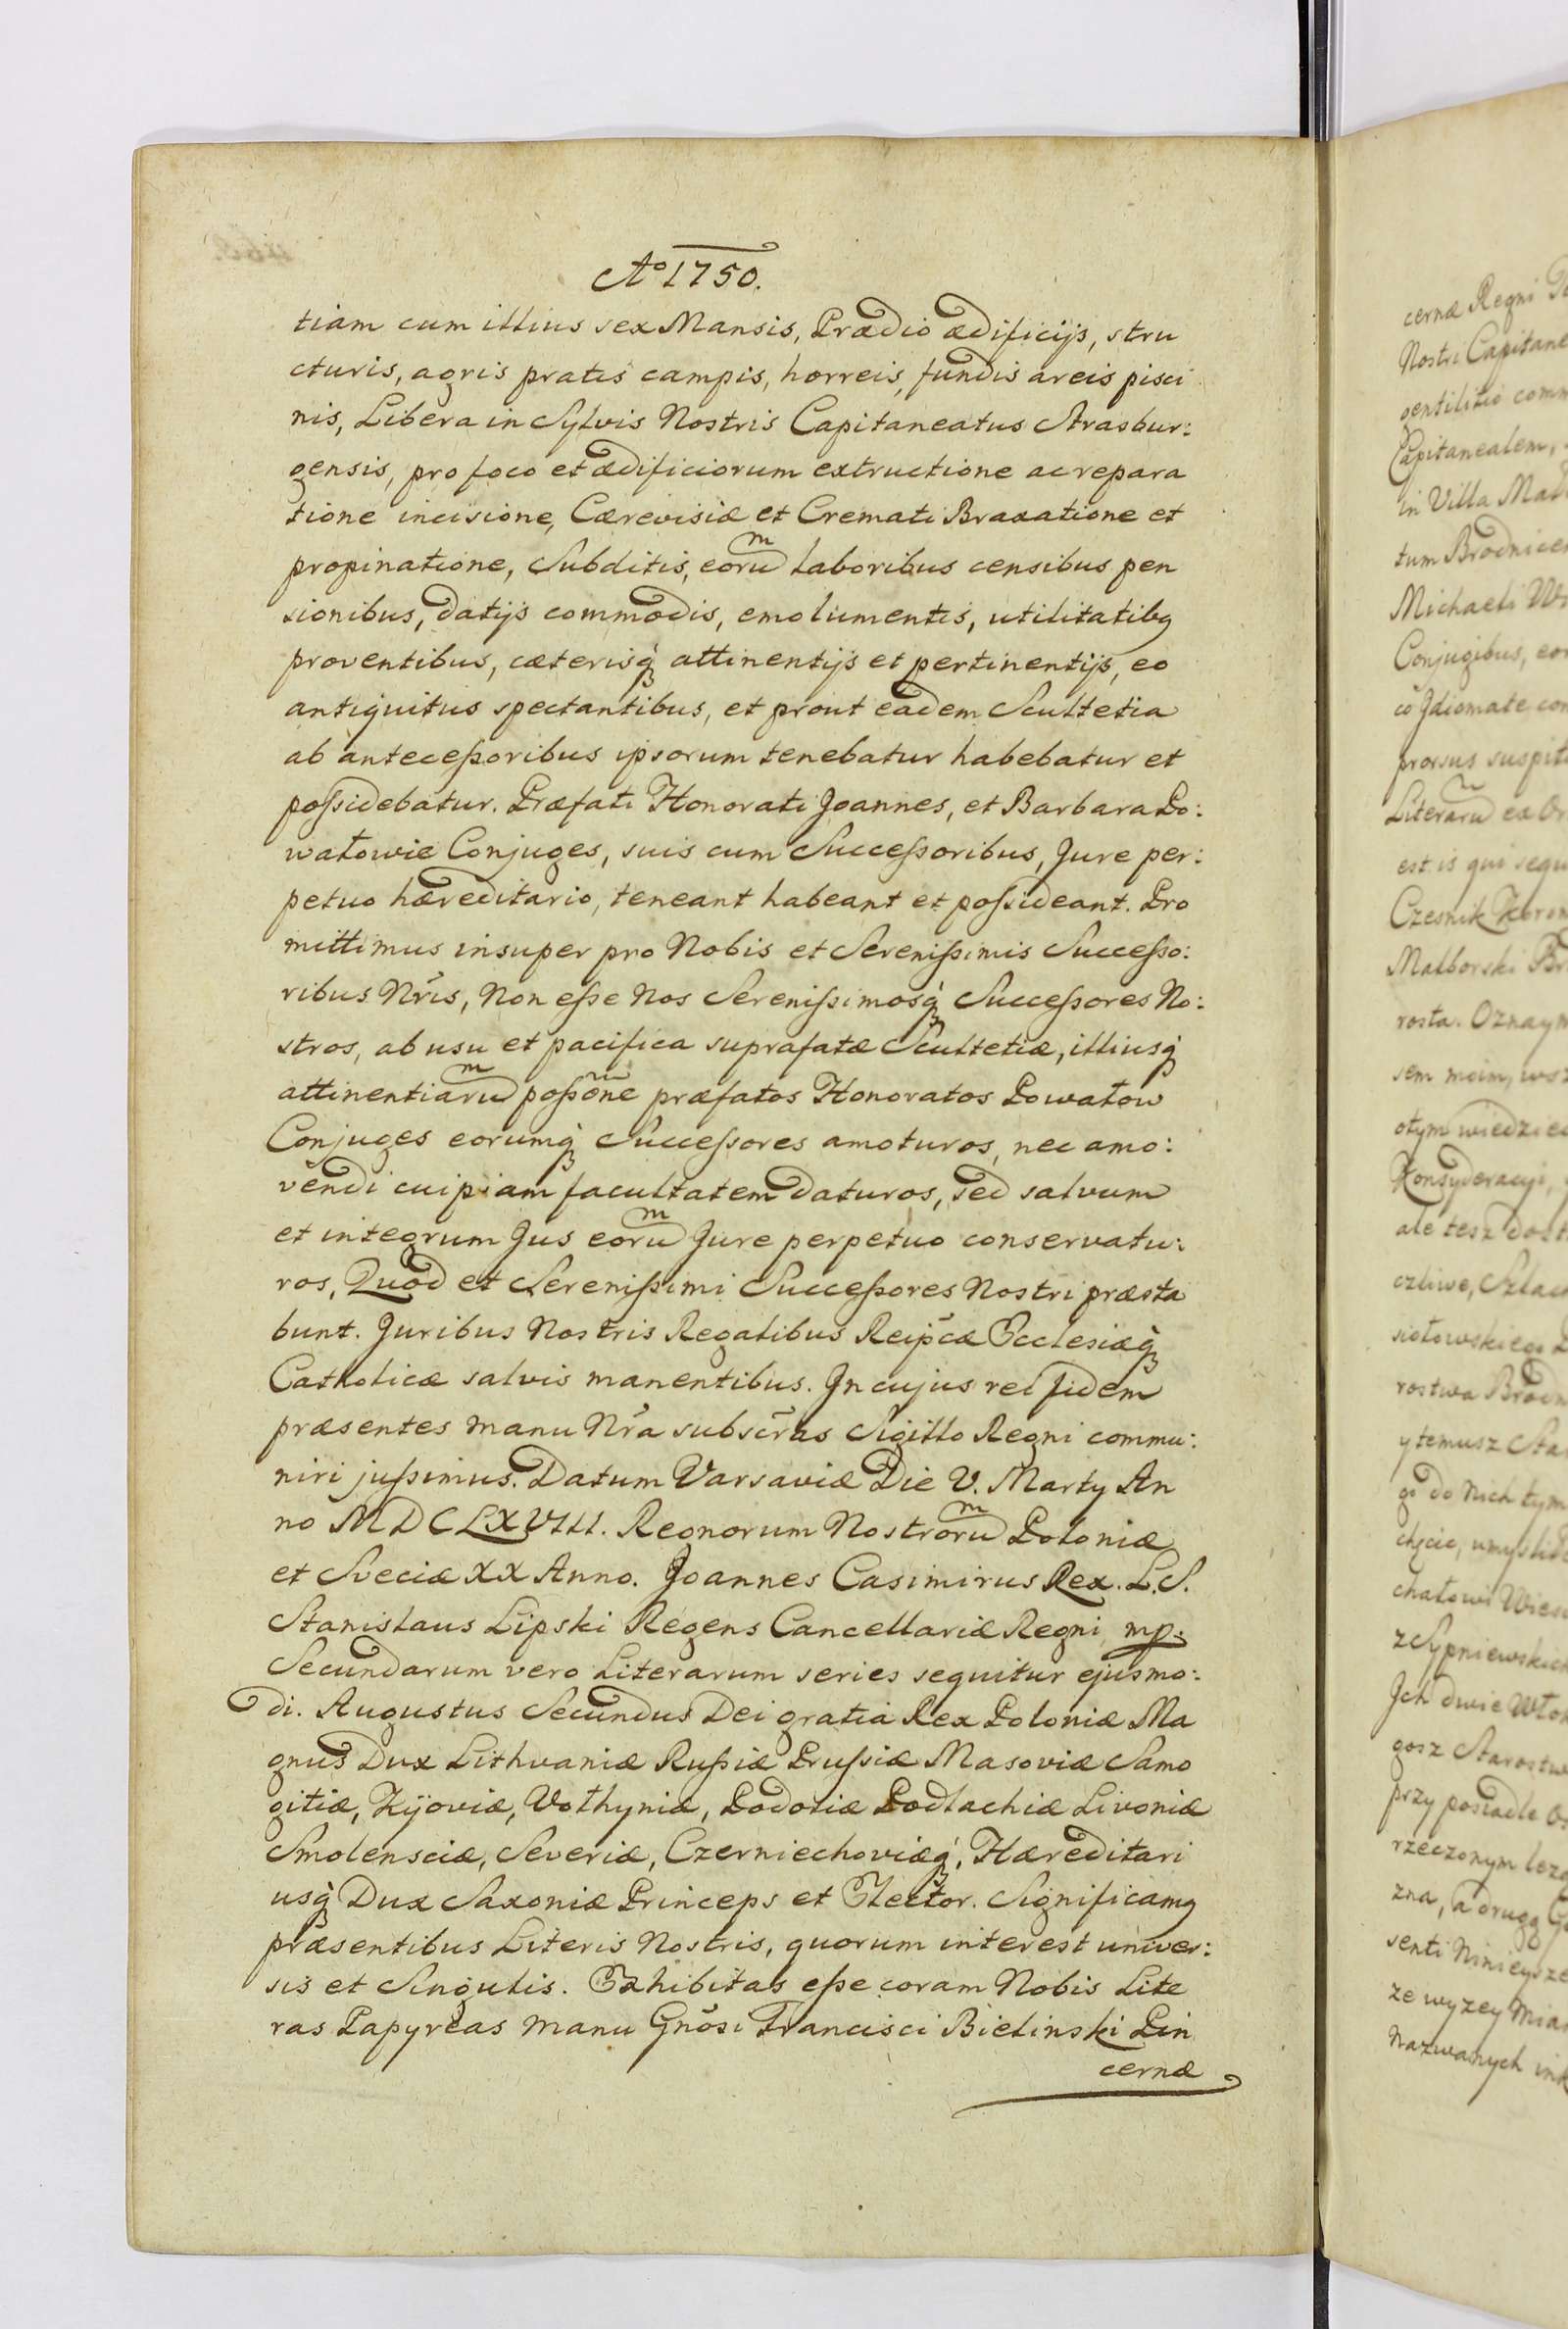 Aᵒ 1750.
tiam cum illius sex Mansis, Prædio ædificijs, stru
cturis, agris pratis campis, horreis, fundis areis pisci
nis, Libera in Sylvis Nostris Capitaneatus Strasbur:
gensis, pro foco et ædificiorum extructione ac repara
tione incisione, Cærevisiæ et Cremati Braxatione et
propinatione, Subditis, eorum laboribus censibus pen
sionibus, datijs commodis, emolumentis, utilitatibq
proventibus, cæterisq́ attinentijs et pertinentijs, eo
antiquitus spectantibus, et prout eadem Scultetia
ab anteceßoribus ipsorum tenebatur habebatur et
poßidebatur. Præfati Honorati Joannes, et Barbara Po:
watowie Conjuges, suis cum Succeßoribus, Jure per:
petuo hæreditario, teneant habeant et poßideant. Pro
mittimus insuper pro Nobis et Serenißimis Succeßo:
ribus Nr̃is, Non eße Nos Serenißimosq́ Succeßores No:
stros, ab usu et pacifica suprafatæ Scultetiæ, illiusq́
attinentiarum poßõne præfatos Honoratos Powatow
Conjuges eorumq́ Succeßores amoturos, nec amo:
vendi cuipiam facultatem daturos, sed salvum
et integrum Jus eorum Jure perpetuo conservatu:
ros, Quod et Serenißimi Succeßores Nostri præsta
bunt. Juribus Nostris Regalibus Reip̃cæ Ecclesiæq́
Catholicæ salvis manentibus. In cujus rei fidem
præsentes manu Nr̃a subscr̃as Sigillo Regni commu:
niri jußimus. Datum Varsaviæ Die V. Marty An
no MDCLXVIII. Regnorum Nostrorum Poloniæ
et Sveciæ XX Anno. Joannes Casimirus Rex. L.S.
Stanislaus Lipski Regens Cancellariæ Regni mp.
Secundarum vero Literarum series sequitur ejusmo:
di. Augustus Secundus Dei gratia Rex Poloniæ Ma
gnus Dux Lithvaniæ Rußiæ Prußiæ Masoviæ Samo
gitiæ, Kijoviæ, Volhyniæ, Podoliæ Podlachiæ Livoniæ
Smolensciæ, Severiæ, Czerniechoviæq́, Hæreditari
usq́ Dux Saxoniæ Princeps et Elector. Significamq
præsentibus Literis Nostris, quorum interest univer:
sis et Singulis. Exhibitas eße coram Nobis Lite
ras Papyreas manu Gnõsi Francisci Bielinski Pin
cernæ
cernæ Regni
Nostri Capitane
gentilitio comm
Capitanealem,
in Villa
tum Brodnicen
Michaeli
Conjugibus,
Idiomate con
prorsus
Literarum ex
est is qui sequ
Czesnik Koron
Malborski
rosta. Oznaym
sem moim,
otym wiedziec
Konsyderacyi,
ale tesz
czliwe, Szlach
siołowskiego
rostwa Brodn
ytemusz
go do Nich tym
chęcie,
chałowi
z Sypniewskich
Ich dwie Włok
gosz Starostw
przy
rzeczonym
zna, a drugą
senti Ninieysze
ze wyzey
Nazwanych